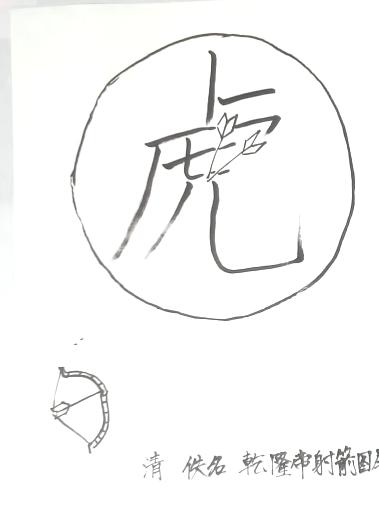 虎
清 佚名 乾隆帝射箭图